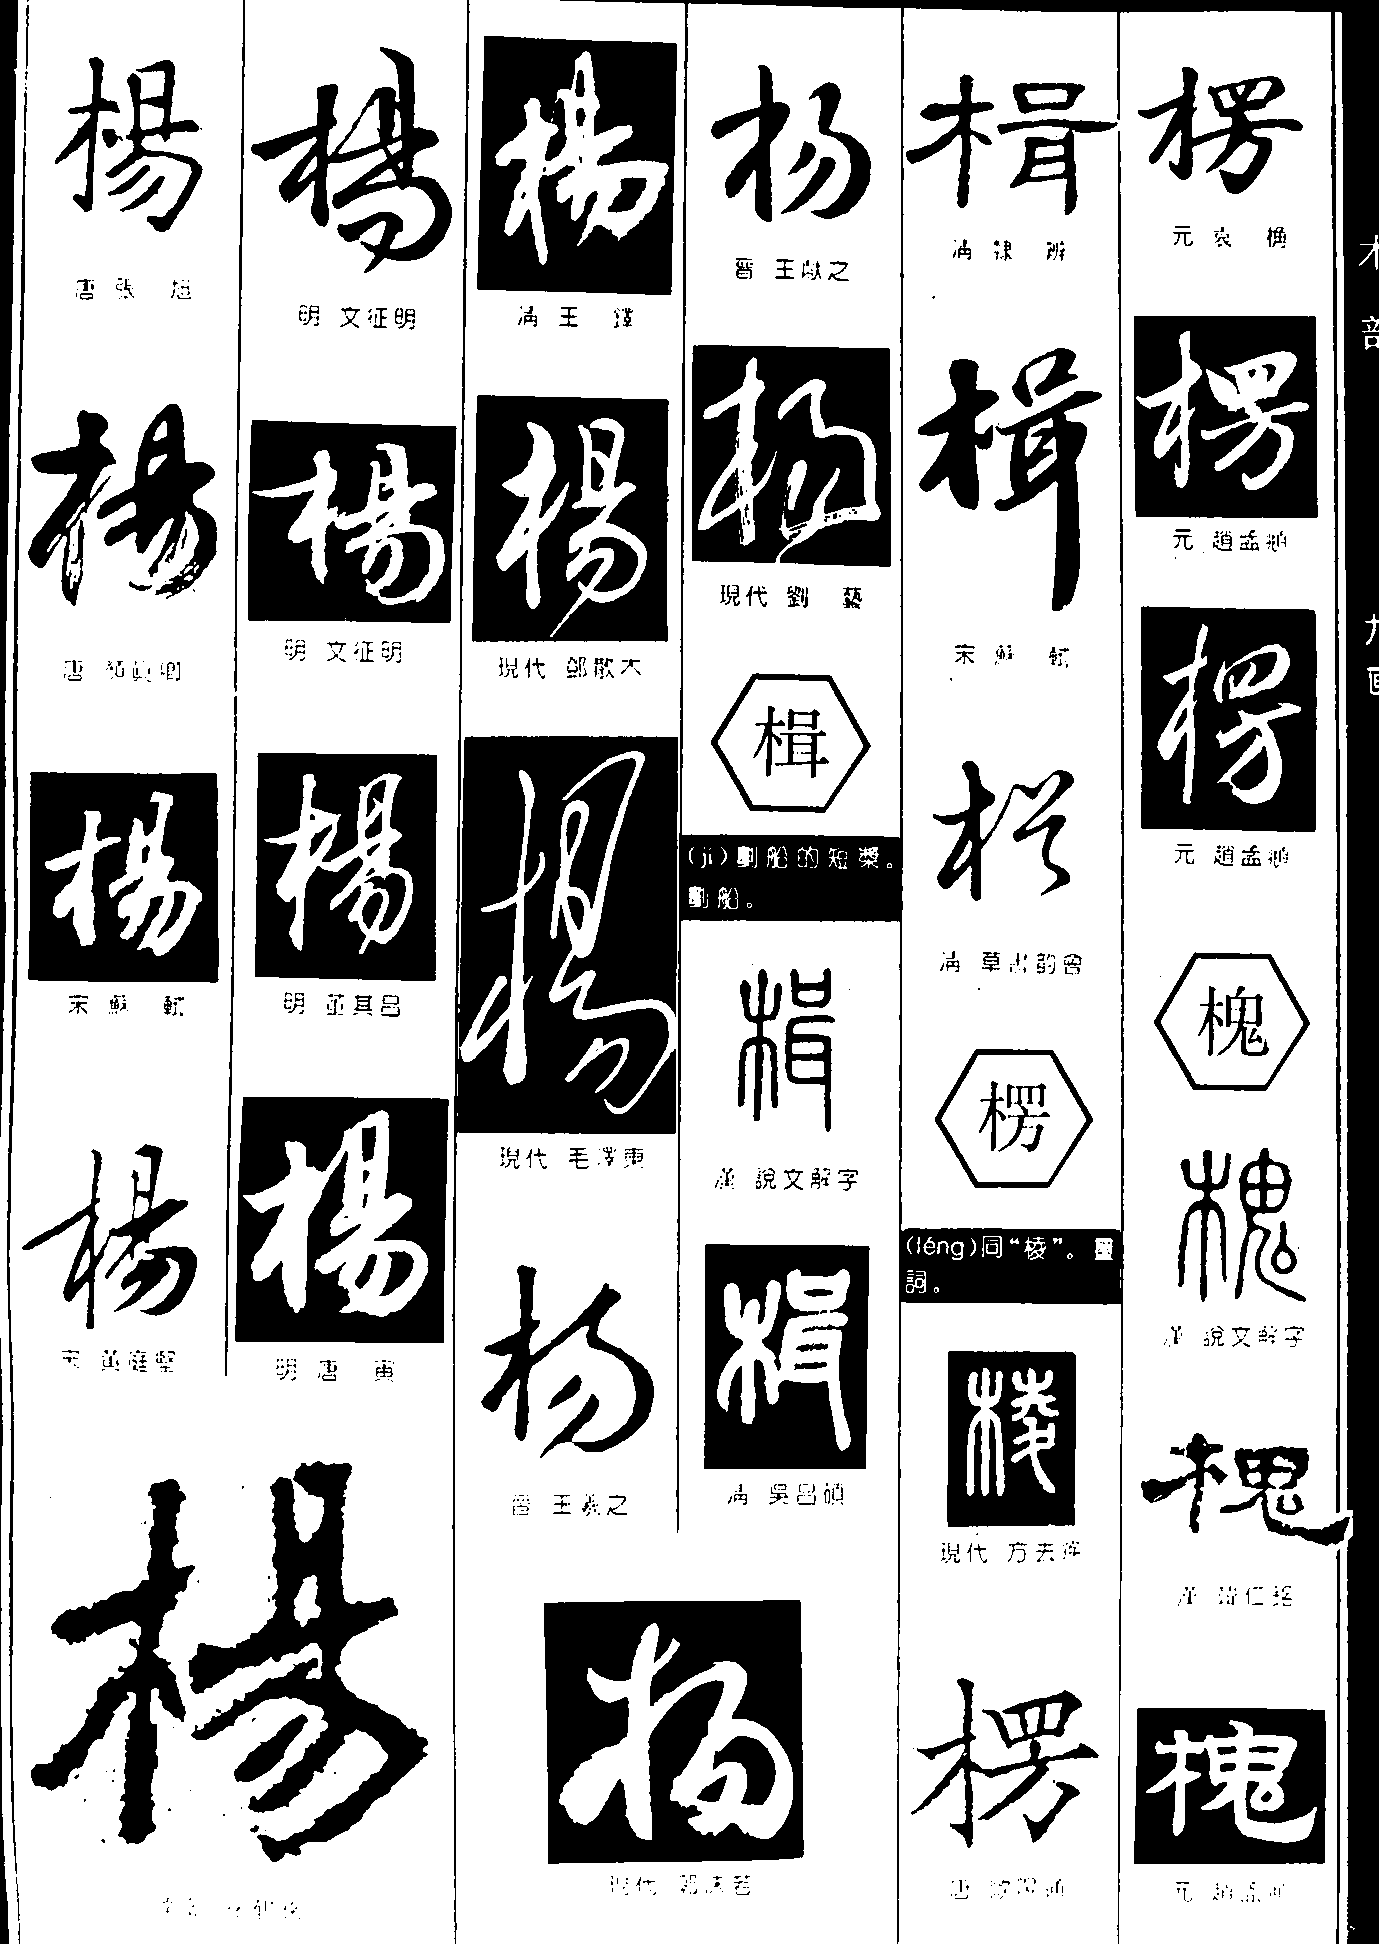 楊
唐 張 旭
楊
唐 顔真卿
楊
宋 蘇 軾
楊
宋 黃庭堅
楊
楊
明 文征明
楊
明 文征明
楊
明 董其昌
楊
明 唐 寅
楊
清 王 鐸
楊
現代 鄧散木
楊
現代 毛澤東
杨
晉 王羲之
杨
現代 郭沫若
杨
晉 王獻之
杨
現代 劉 藝
楫
(jí)劃船的短槳。
劃船。
楫
漢 說文解字
楫
清 吳昌碩
楫
清 隸 辨
楫
宋 蘇 軾
楫
清 草書韵會
楞
(léng)同“棱”。量
詞。
棱
現代 方去疾
楞
唐 歐陽通
楞
元 袁 桷
楞
元 趙孟頫
楞
元 趙孟頫
槐
槐
漢 說文解字
槐
漢 韓仁銘
槐
元 趙孟頫
木
部
九
畫